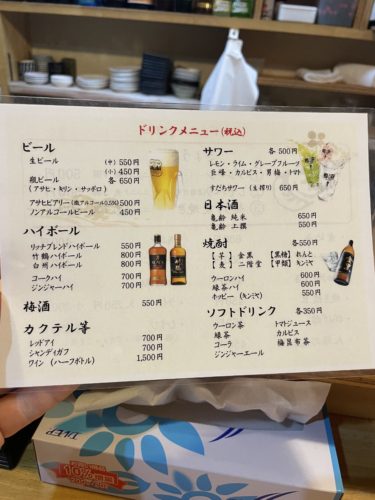 ドリンクメニュー(税込)
ビール
生ビール (中) 550円
(小) 450円
瓶ビール 各 650円
(アサヒ・キリン・サッポロ)
アサヒビアリー(微アルコール0.5%) 500円
ノンアルコールビール 450円
ハイボール
リッチブレンドハイボール 550円
竹鶴ハイボール 800円
白州ハイボール 800円
コークハイ 700円
ジンジャーハイ 700円
梅酒 550円
カクテル等
レッドアイ 700円
シャンディガフ 700円
ワイン (ハーフボトル) 1,500円
サワー 各 500円
レモン・ライム・グレープフルーツ
巨峰・カルピス・男梅・トマト
すだちサワー(生搾り) 650円
日本酒
亀齢 純米 650円
亀齢 上撰 550円
焼酎 各550円
【芋】金黒 【黒糖】れんと
【麦】二階堂 【甲類】キンミヤ
ウーロンハイ 600円
緑茶ハイ 600円
ホッピー (キンミヤ) 650円
ソフトドリンク 各350円
ウーロン茶 トマトジュース
緑茶 カルピス
コーラ 梅昆布茶
ジンジャーエール